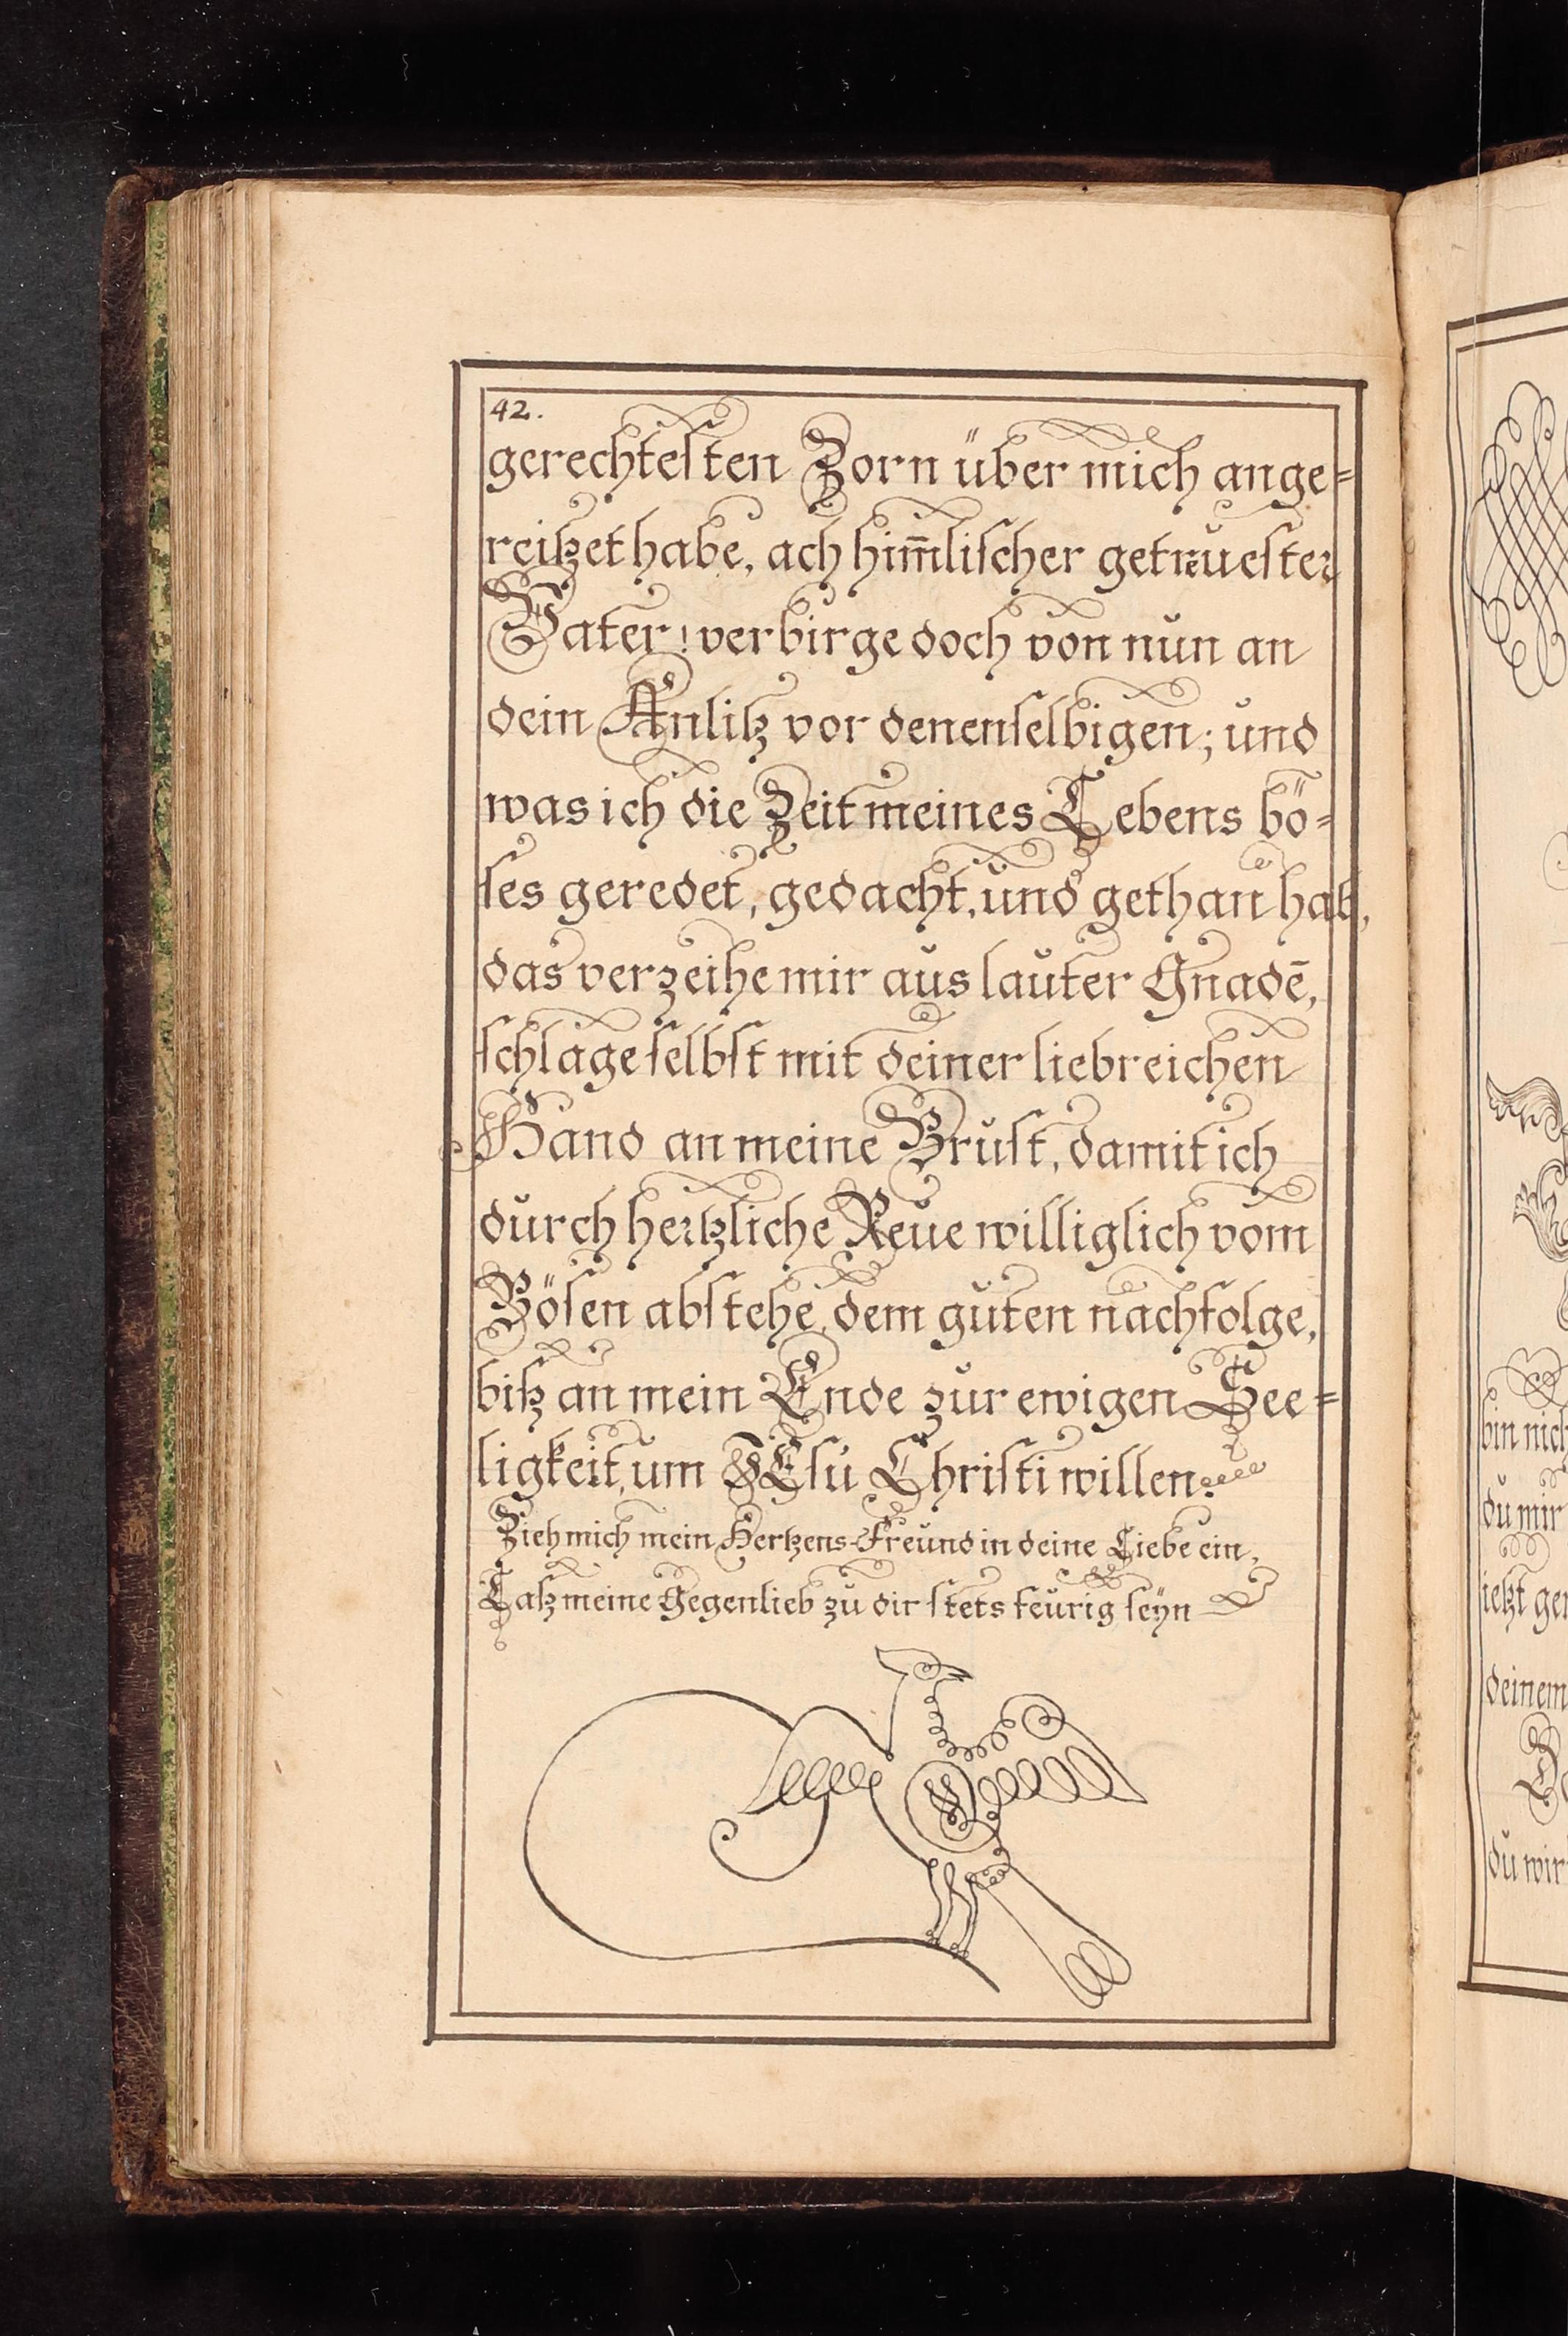 42.
gerechtesten Zorn über mich ange=
reitzet habe, ach him̄lischer getreuester
Vater! verbirge doch von nun an
dein Anlitz vor denenselbigen; und
was ich die Zeit meines Lebens bö=
ses geredet, gedacht, und gethan hab,
das verzeihe mir aus lauter Gnadē,
schlage selbst mit deiner liebreichen
Hand an meine Brust, damit ich
durch hertzliche Reue williglich vom
Bösen abstehe, dem guten nachfolge,
biß an mein Ende zur ewigen See=
ligkeit, um JEsu Christi willen.
Zieh mich mein Hertzens-Freund in deine Liebe ein,
Laß meine Gegenlieb zu dir stets feurig seyn
bin nich
du mir
ietzt ger
deinem
du wir